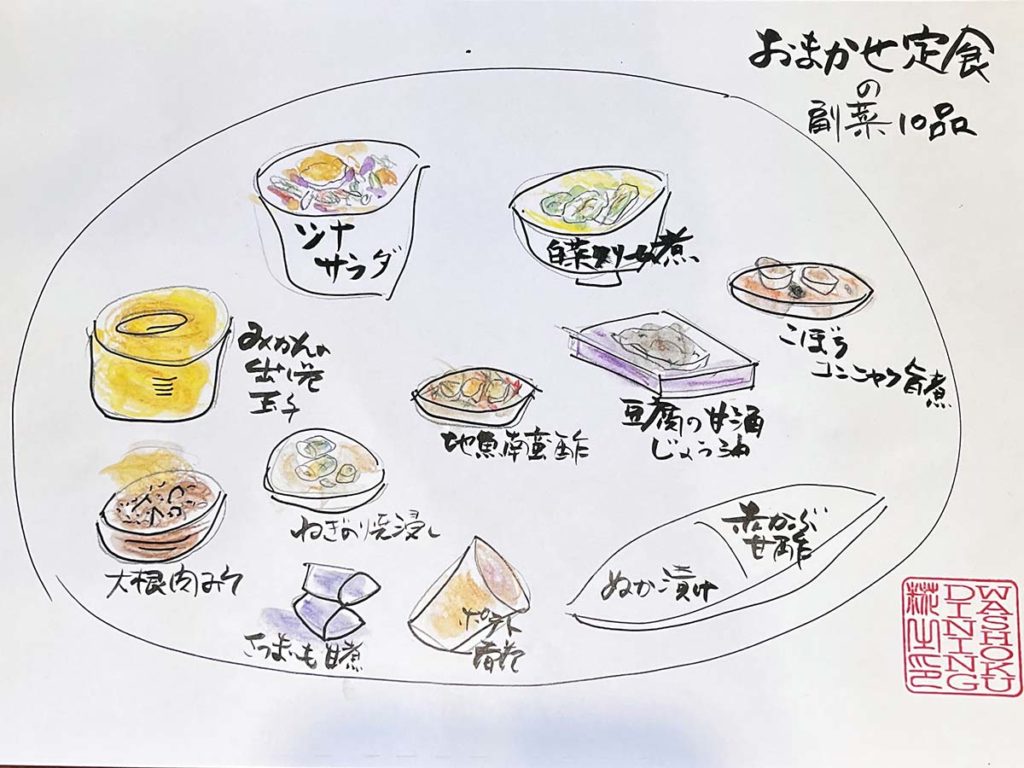 おまかせ定食
の
副菜10品
ツナ
サラダ
白菜クリーム煮
ごぼう
コンニャク旨煮
みかんの
出し巻
玉子
地魚南蛮酢
豆腐の甘酒
じょう油
ねぎの焼浸し
大根肉みそ
さつまいも甘煮
ポテト
春巻
ぬか漬け
赤かぶ
甘酢
WASHOKU
DINING